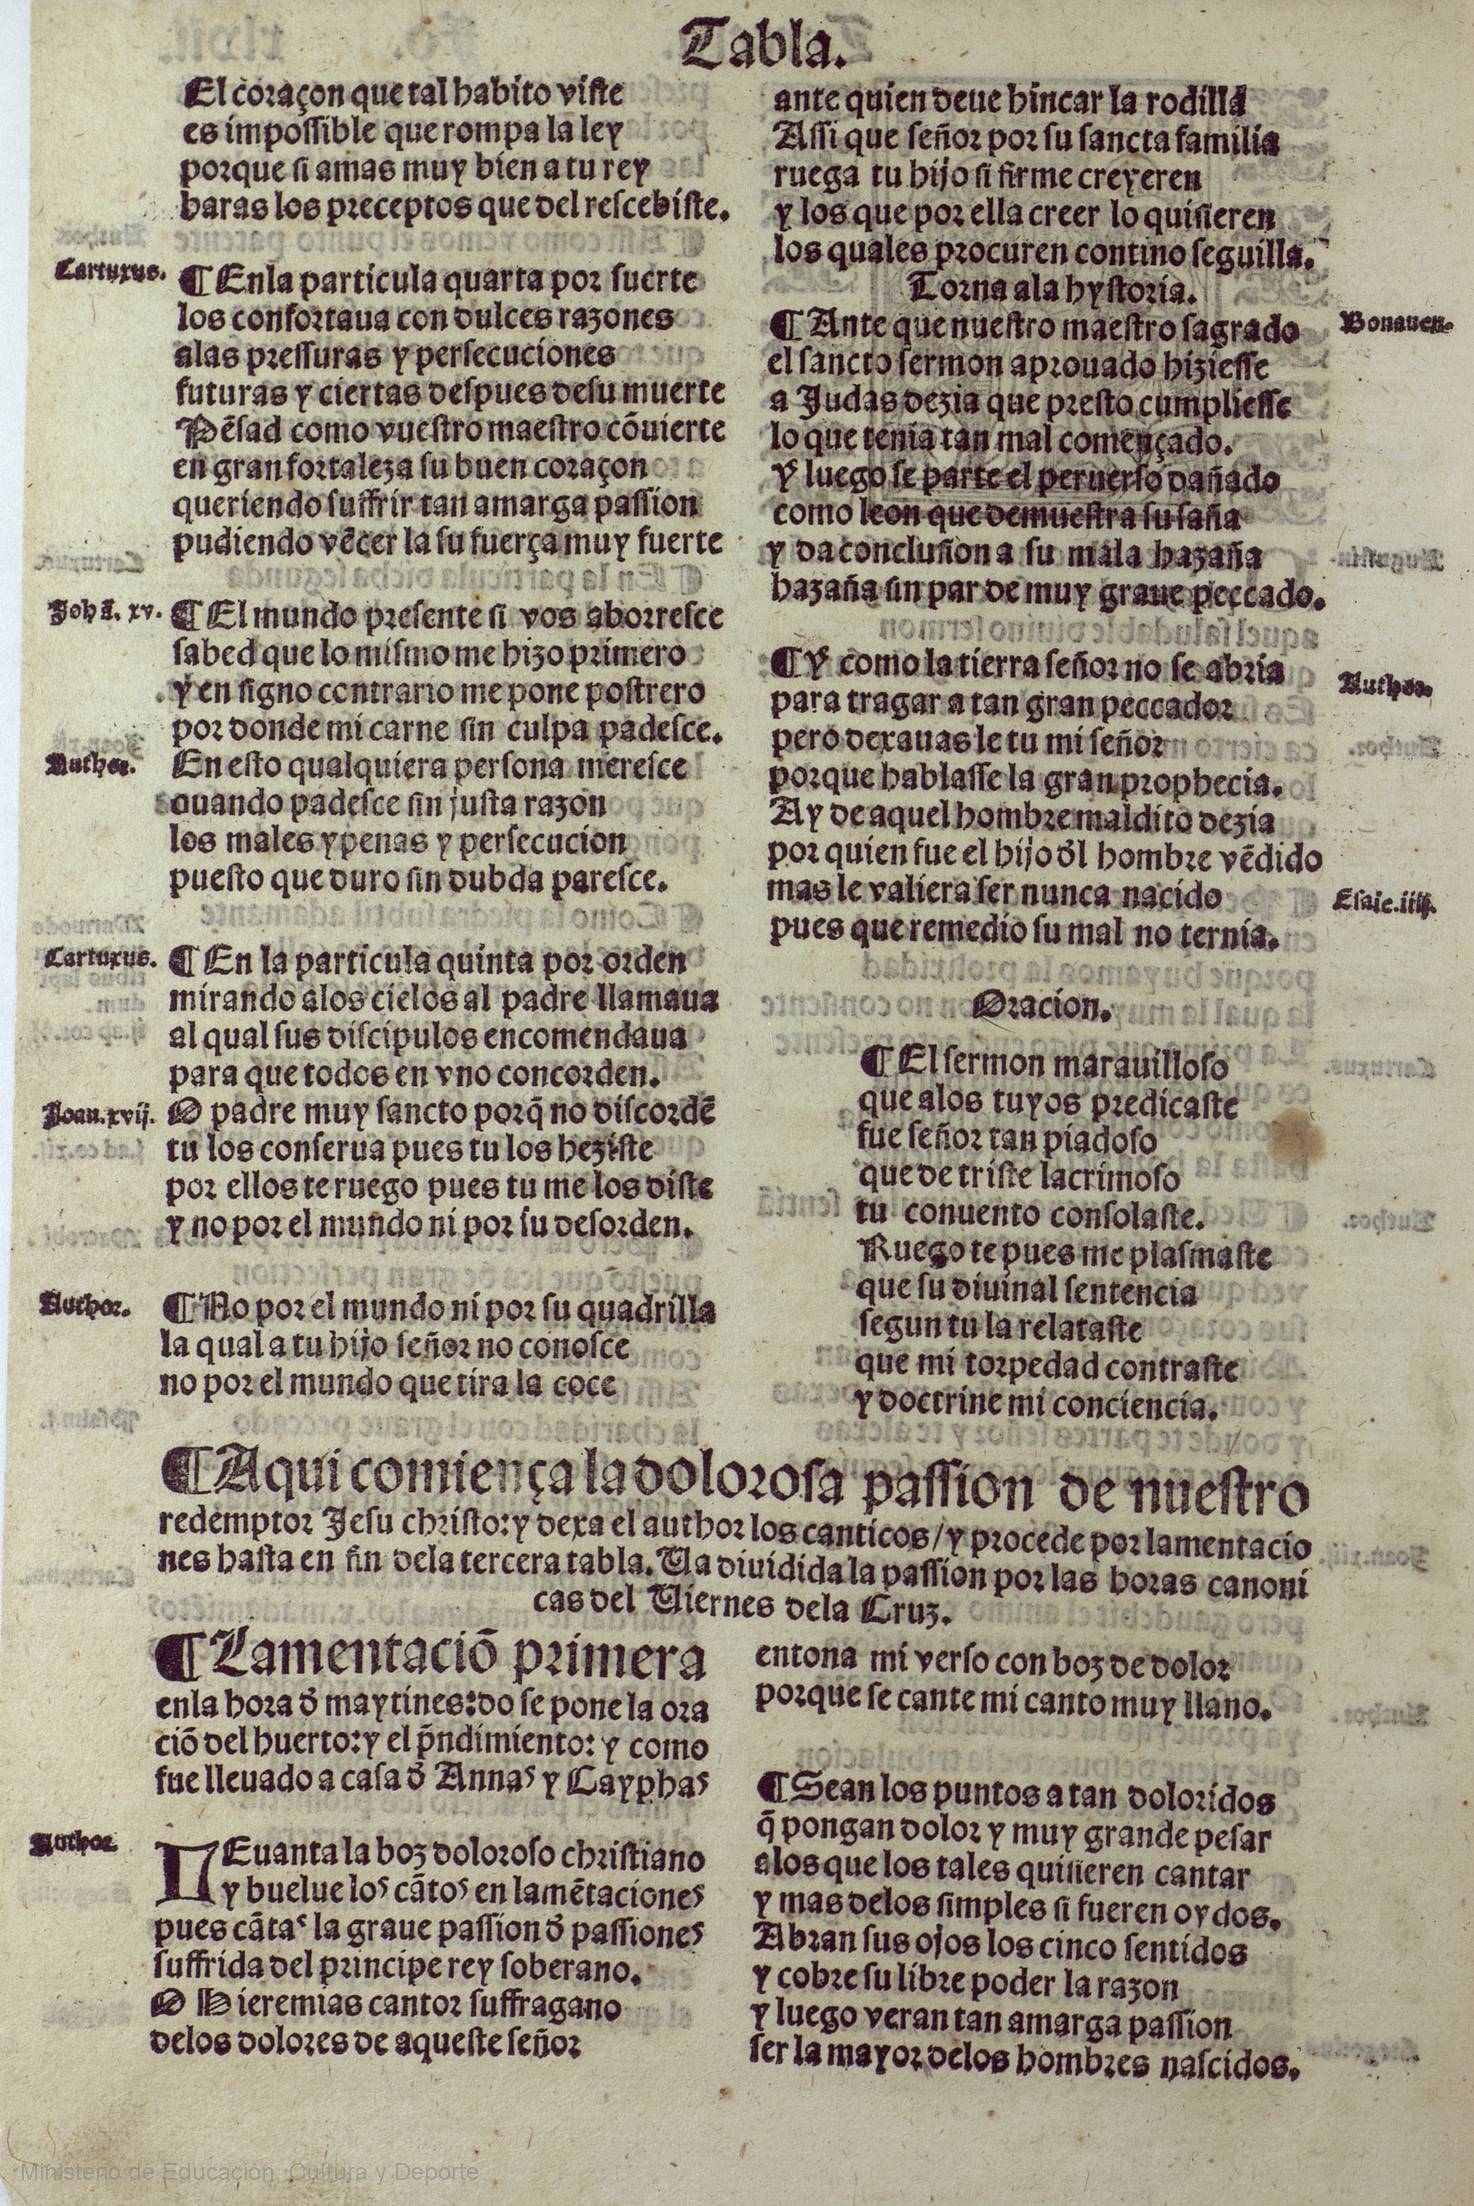 Tabla.
El coraçon que tal habito viste
es impossible que rompa la ley
porque si amas muy bien a tu rey
haras los preceptos que del rescebiste.
Cartuxus.
¶ Enla particula quarta por suerte
los confortaua con dulces razones
alas pressuras y persecuciones
futuras y ciertas despues desu muerte
Pẽsad como vuestro maestro cõuierte
en gran fortaleza su buen coraçon
queriendo suffrir tan amarga passion
pudiendo vẽcer la su fuerça muy fuerte
Johã. xv.
¶ El mundo presente si vos aborresce
sabed que lo mismo me hizo primero
y en signo contrario me pone postrero
por donde mi carne sin culpa padesce.
Author.
En esto qualquiera persona meresce
quando padesce sin justa razon
los males y penas y persecucion
puesto que duro sin dubda paresce.
Cartuxus.
¶ En la particula quinta por orden
mirando alos cielos al padre llamaua
al qual sus discipulos encomendaua
para que todos en vno concorden.
Joan. xvij.
O padre muy sancto porq̃ no discordẽ
tu los conserua pues tu los heziste
por ellos te ruego pues tu me los diste
y no por el mundo ni por su desorden.
Author.
¶ No por el mundo ni por su quadrilla
la qual a tu hijo señor no conosce
no por el mundo que tira la coce
ante quien deue hincar la rodilla
Assi que señor por su sancta familia
ruega tu hijo si firme creyeren
y los que por ella creer lo quisieren
los quales procuren contino seguilla.
Torna ala hystoria.
Bonauen.
¶ Ante que nuestro maestro sagrado
el sancto sermon aprouado hiziesse
a Judas dezia que presto cumpliesse
lo que tenia tan mal començado.
Y luego se parte el peruerso dañado
como leon que demuestra su saña
y da conclusion a su mala hazaña
hazaña sin par de muy graue peccado.
Author.
¶ Y como la tierra señor no se abria
para tragar a tan gran peccador
pero dexauas le tu mi señor
porque hablasse la gran prophecia.
Ay de aquel hombre maldito dezia
por quien fue el hijo đl hombre vẽdido
Esaie. iiij.
mas le valiera ser nunca nacido
pues que remedio su mal no ternia.
Oracion.
¶ El sermon marauilloso
que alos tuyos predicaste
fue señor tan piadoso
que de triste lacrimoso
tu conuento consolaste.
Ruego te pues me plasmaste
que su diuinal sentencia
segun tu la relataste
que mi torpedad contraste
y doctrine mi conciencia.
¶ Aqui comiença la dolorosa passion de nuestro
redemptor Jesu christo: y dexa el author los canticos / y procede por lamentacio
nes hasta en fin dela tercera tabla. Ua diuidida la passion por las horas canoni
cas del Uiernes dela Cruz.
¶ Lamentaciõ primera
enla hora đ maytines: do se pone la ora
ciõ del huerto: y el p̃ndimiento: y como
fue lleuado a casa đ Annas y Cayphas
Author.
LEuanta la boz doloroso christiano
y buelue los cãtos en lamẽtaciones
pues cãtas la graue passion đ passiones
suffrida del principe rey soberano.
O Hieremias cantor suffragano
delos dolores de aqueste señor
entona mi verso con boz de dolor
porque se cante mi canto muy llano.
¶ Sean los puntos a tan doloridos
q̃ pongan dolor y muy grande pesar
alos que los tales quisieren cantar
y mas delos simples si fueren oydos.
Abran sus ojos los cinco sentidos
y cobre su libre poder la razon
y luego veran tan amarga passion
ser la mayor delos hombres nascidos.
Ministerio de Educación, Cultura y Deporte